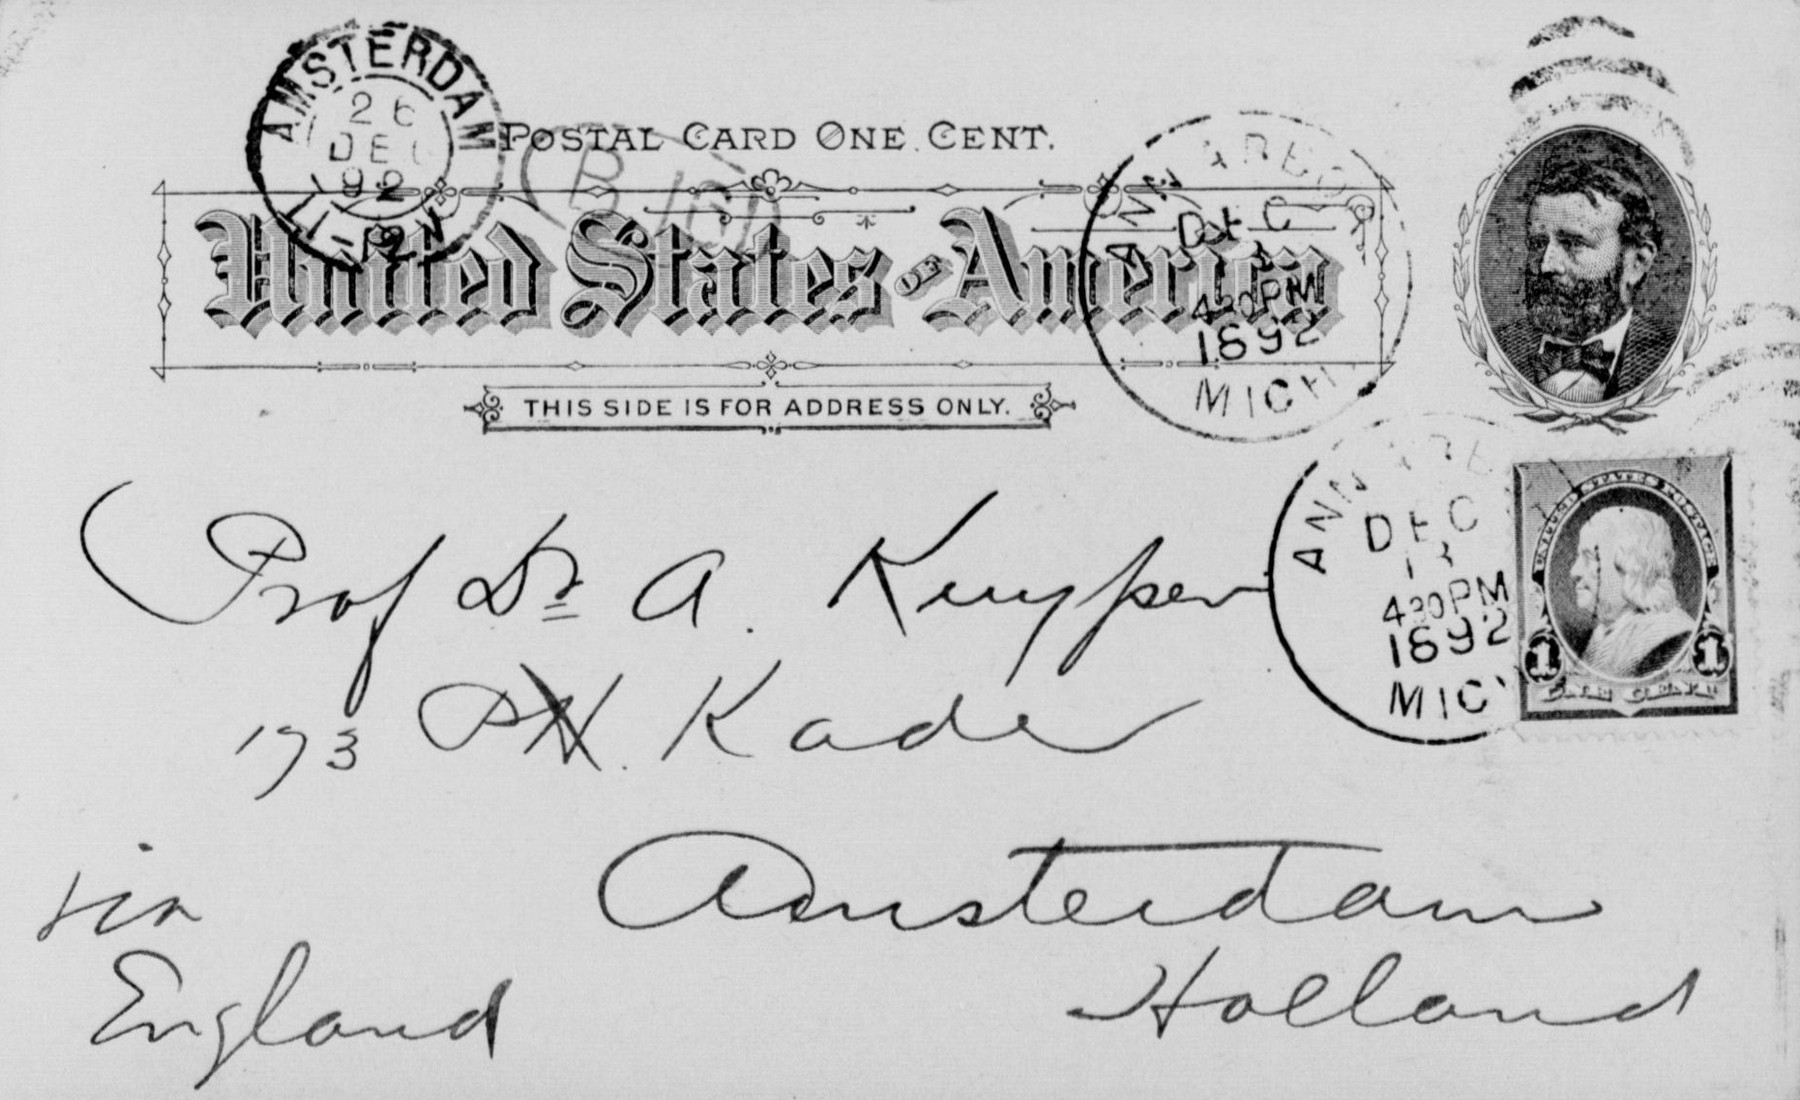 AMSTERDAM
26
DEC
92
11-12N
POSTAL CARD ONE CENT.
B 16
United States OF America
THIS SIDE IS FOR ADDRESS ONLY.
ANN ARBOR
DEC
430PM
1892
MICH
ANN ARB
DEC
13
430PM
1892
MICH
UNITED STATES POSTAGE
1 1
ONE CENT
Prof Dr A. Kuyper
173 P. H. Kade
Amsterdam
via
England
Holland